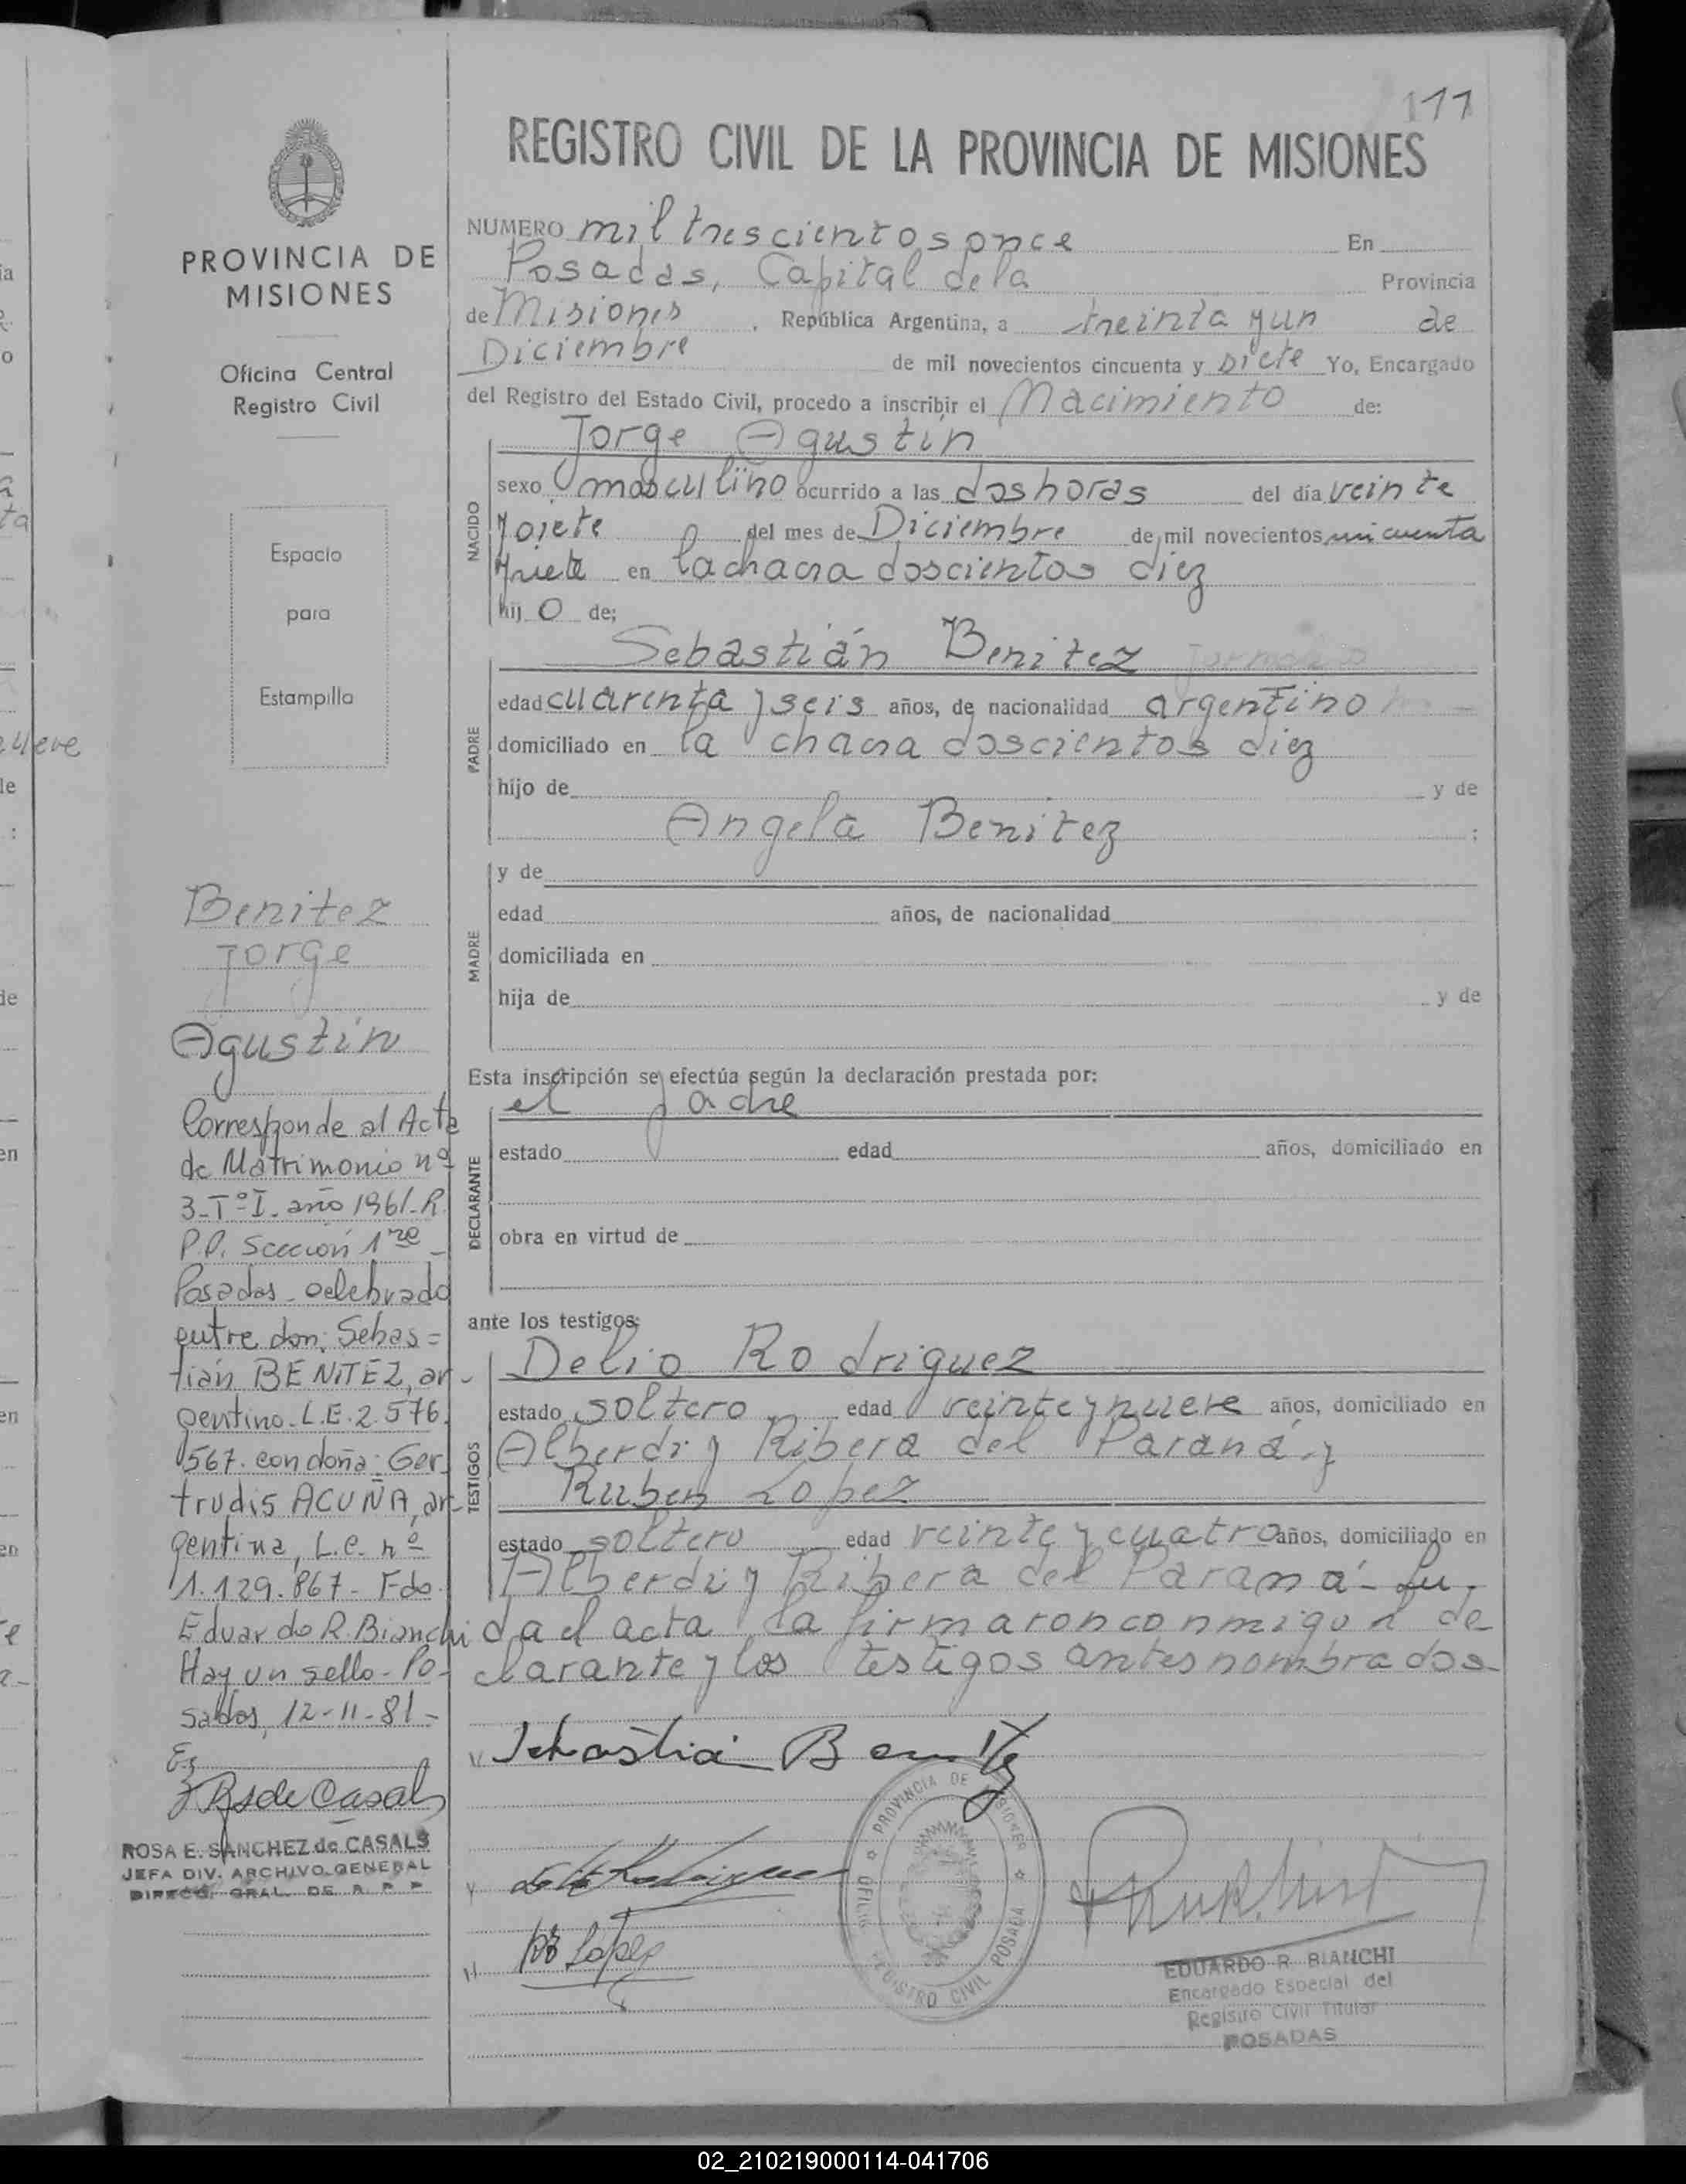 111
REGISTRO CIVIL DE LA PROVINCIA DE MISIONES
PROVINCIA DE
MISIONES
Oficina Central
Registro Civil
Espacio
para
Estampilla
Benitez
Jorge
Agustín
Corresponde al Acta
de Matrimonio nº
3-Tº-I. año 1961-R.
P.P. Sección 1ra
Posadas celebrado
entre don: Sebas=
tián BENITEZ, ar-
gentino. L.E. 2.576.
567. con doña: Ger
trudis ACUÑA, ar-
gentina, L.C. nº
1.129.867- Fdo.
Eduardo R. Bianchi
Hay un sello- Po-
sadas, 12-11-81-
ROSA E. SANCHEZ de CASALS
JEFA DIV. ARCHIVO GENERAL
DIRECC. GRAL. DE R. P. P.
NUMERO mil trescientos once En
Posadas, Capital de la Provincia
de Misiones, República Argentina, a treinta y un de
Diciembre de mil novecientos cincuenta y siete Yo, Encargado
del Registro del Estado Civil, procedo a inscribir el Nacimiento de:
NACIDO
Jorge Agustín
sexo masculino ocurrido a las dos horas del día veinte
y siete del mes de Diciembre de mil novecientos cincuenta
y siete en la chacra doscientos diez
hijo de;
PADRE
Sebastián Benitez
edad cuarenta y seis años, de nacionalidad argentino
domiciliado en la chacra doscientos diez
hijo de y de
Angela Benitez :
MADRE
y de
edad años, de nacionalidad
domiciliada en
hija de y de
Esta inscripción se efectúa según la declaración prestada por:
DECLARANTE
el padre
estado edad años, domiciliado en
obra en virtud de
ante los testigos:
TESTIGOS
Delio Rodriguez
estado soltero edad veinte y nueve años, domiciliado en
Alberdi y Ribera del Paraná y
Ruben Lopez
estado soltero edad veinte y cuatro años, domiciliado en
Alberdi y Ribera del Paraná- Lei-
da el acta la firmaron conmigo el de
clarante y los testigos antes nombrados
Sebastia Benitez
PROVINCIA DE MISIONES
REGISTRO CIVIL POSADAS
EDUARDO R. BIANCHI
Encargado Especial del
Registro Civil Titular
POSADAS
02_210219000114-041706